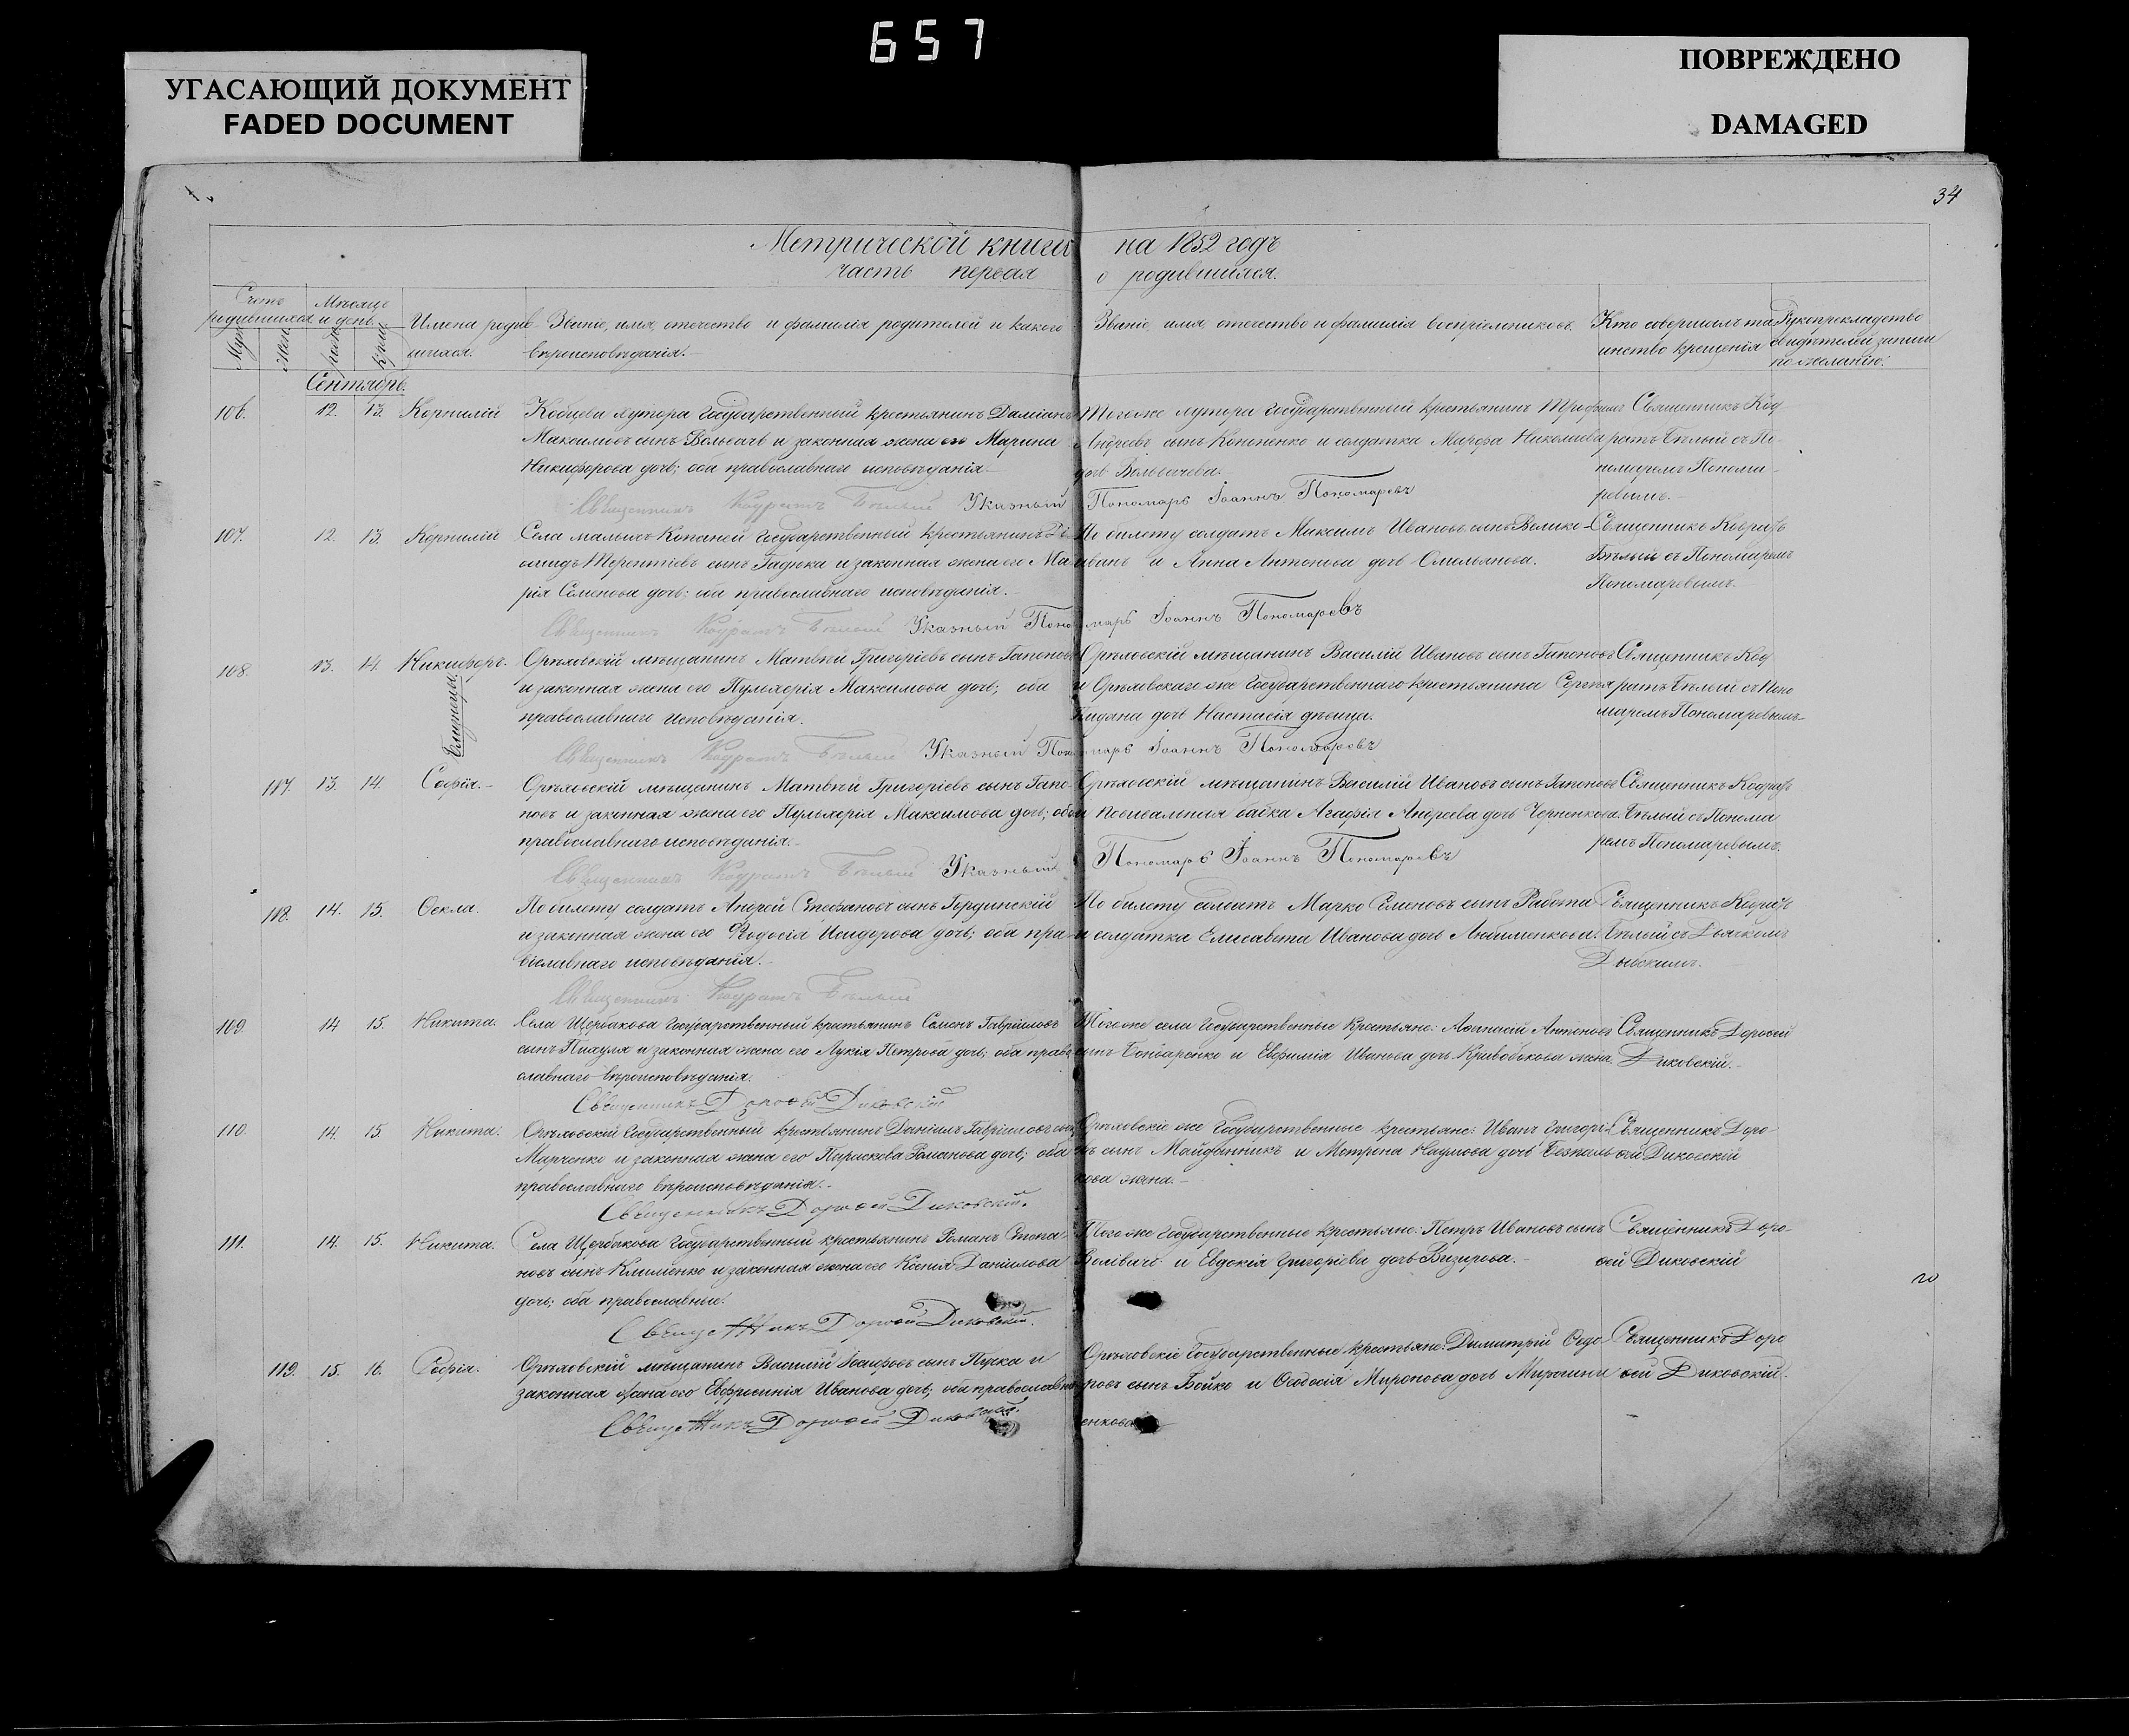 657
УГАСАЮЩИЙ ДОКУМЕНТ
FADED DOCUMENT
ПОВРЕЖДЕНО
DAMAGED
34
Метрической книги на 1852 годъ
часть первая о родившихся.
Счетъ родившихся
Мѣсяцъ и день
Имена родившихся.
Званіе, имя, отечество и фамилія родителей и какого вѣроисповѣданія.
Званіе, имя, отечество и фамилія воспріемниковъ.
Кто совершалъ таинство крещенія
Рукоприкладство свидѣтелей записи по желанію.
Муж. Жен.
Сентябрь.
106. 12. 13. Корнилій
государственный крестьянинъ Даміанъ
Максимовъ сынъ и законная жена его Марина
Никифорова дочь; оба православнаго исповѣданія.
Тогоже хутора государственный крестьянинъ Трифонъ
Андреевъ сынъ Кононенко и солдатка Марфа Николаева
дочь
Священникъ Код
ратъ Бѣлый съ По-
номаремъ Понома-
ревымъ.
Священникъ Кодратъ Бѣлый Указный Пономарь Іоаннъ Пономаревъ
107. 12. 13. Корнилій
Села малыхъ Копаней государственный крестьянинъ
Терентіевъ сынъ Гадюка и законная жена его Ма
рія Семенова дочь; оба православнаго исповѣданія.
По билету солдатъ Максимъ Ивановъ сынъ Велико-
иванъ и Анна Антонова дочь Омельянова.
Священникъ Кодратъ
Бѣлый съ Пономаремъ
Пономаревымъ.
Священникъ Кодратъ Бѣлый Указный Пономарь Іоаннъ Пономаревъ
108. 13. 14. Никифоръ.
Близнецы
Орѣховскій мѣщанинъ Матвѣй Григоріевъ сынъ Гапоновъ
и законная жена его Пульхерія Максимова дочь; оба
православнаго исповѣданія.
Орѣховскій мѣщанинъ Василій Ивановъ сынъ Гапоновъ
и Орѣховскаго же государственнаго крестьянина Сергѣя
дочь Настасія дѣвица.
Священникъ Код
ратъ Бѣлый съ Поно
маремъ Пономаревымъ
Священникъ Кодратъ Бѣлый Указный Пономарь Іоаннъ Пономаревъ
117. 13. 14. Софія.
Орѣховскій мѣщанинъ Матвѣй Григоріевъ сынъ Гапо-
новъ и законная жена его Пульхерія Максимова дочь; оба
православнаго исповѣданія.
Орѣховскій мѣщанинъ Василій Ивановъ сынъ Гапоновъ
и повивальная бабка Агафія Андреева дочь Черненкова.
Священникъ Кодратъ
Бѣлый съ Понома
ремъ Пономаревымъ.
Священникъ Кодратъ Бѣлый Указный Пономарь Іоаннъ Пономаревъ
118. 14. 15. Ѳекла.
По билету солдатъ Андрей Стефановъ сынъ Гординскій
и законная жена его Ѳеодосія Исидорова дочь; оба пра-
вославнаго исповѣданія.
По билету солдатъ Марко Семеновъ сынъ Работа
и солдатка Елисавета Иванова дочь
Священникъ Кодратъ
Бѣлый съ Дьячкомъ
Священникъ Кодратъ Бѣлый
109. 14 15. Никита.
Села Щербакова государственный крестьянинъ Семенъ Гавріиловъ
сынъ и законная жена его Лукія Петрова дочь; оба право
славнаго вѣроисповѣданія.
Тогоже села государственные крестьяне: Аѳанасій Антоновъ
сынъ Бондаренко и Евфимія Иванова дочь жена.
Священникъ Дороѳей
Диковскій.
Священникъ Дороѳей Диковскій
110. 14. 15. Никита.
Орѣховскій государственный крестьянинъ Даніилъ Гавріиловъ сынъ
Марченко и законная жена его Параскева Романова дочь; оба
православнаго вѣроисповѣданія.
Орѣховскіе же государственные крестьяне: Иванъ Григорі-
въ сынъ Майданникъ и Матрона Наумова дочь
кова жена.
Священникъ Доро-
ѳей Диковскій
Священникъ Дороѳей Диковскій.
111. 14. 15. Никита.
Села Щербакова государственный крестьянинъ Романъ Степа-
новъ сынъ Клименко и законная жена его Ксенія Даніилова
дочь; оба православные.
Тогоже государственные крестьяне: Петръ Ивановъ сынъ
и Евдокія Григоріева дочь Визирова.
Священникъ Доро-
ѳей Диковскій
Священникъ Дороѳей Диковскій.
119. 15. 16. Софія.
Орѣховскій мѣщанинъ Василій сынъ Пучка и
законная жена его Евфросинія Иванова дочь; оба православные
Орѣховскіе государственные крестьяне: Димитрій Ѳедо-
ровъ сынъ Бойко и Ѳеодосія Миронова дочь
енкова
Священникъ Доро
ѳей Диковскій.
Священникъ Дороѳей Диковскій.